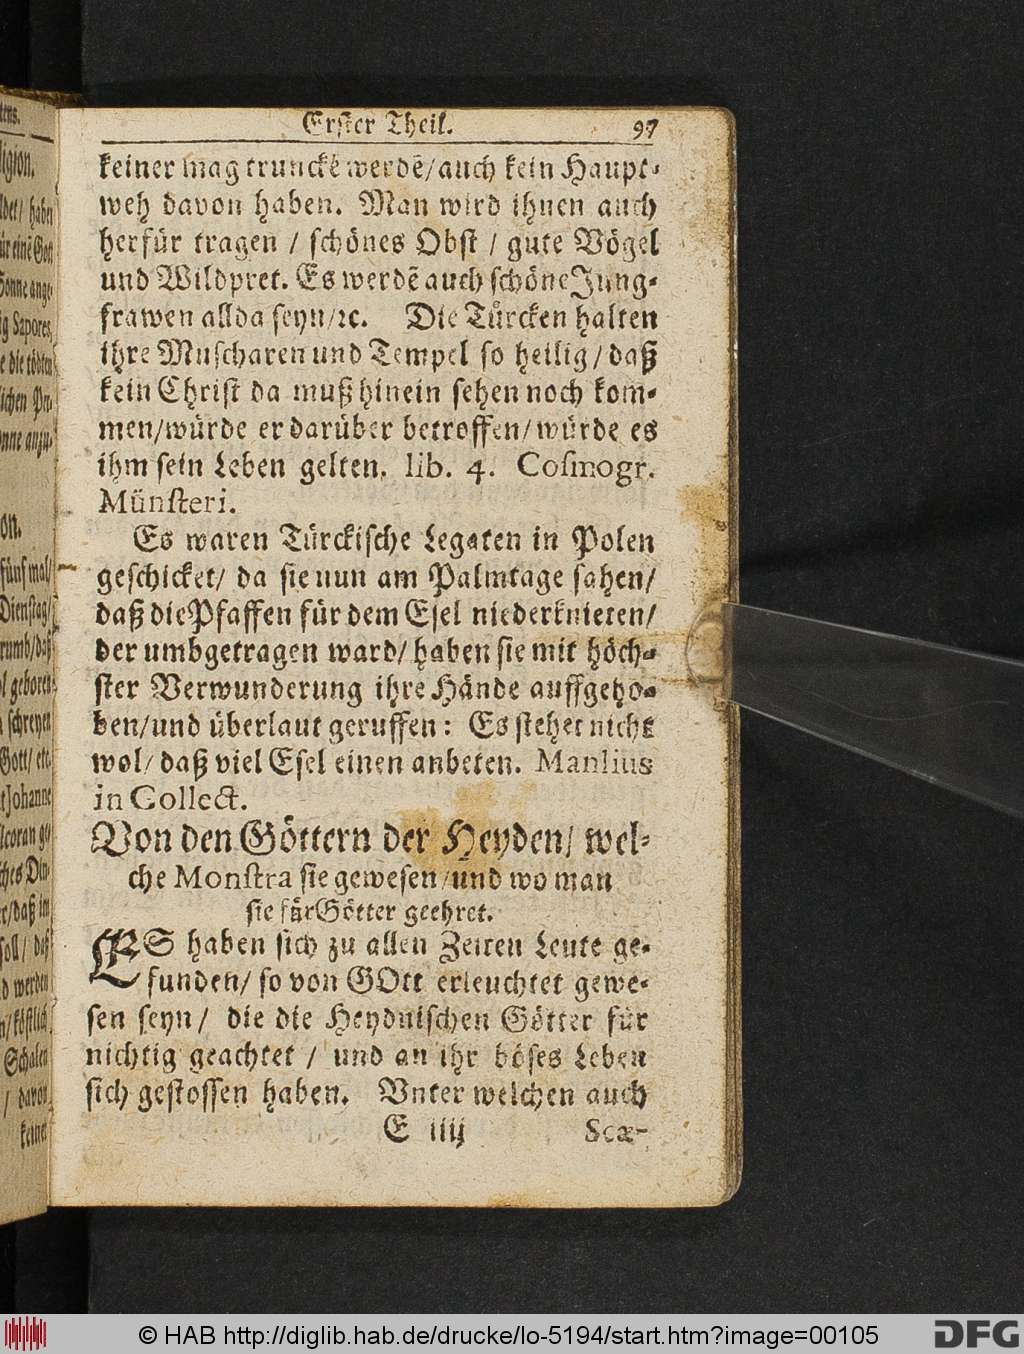 Erster Theil. 97
keiner mag trunckẽ werdẽ/auch kein Haupt-
weh davon haben. Man wird ihnen auch
herfür tragen / schönes Obst / gute Vögel
und Wildpret. Es werdẽ auch schöne Jung-
frawen allda seyn/ꝛc. Die Türcken halten
ihre Muscharen und Tempel so heilig/daß
kein Christ da muß hinein sehen noch kom-
men/würde er darüber betroffen/würde es
ihm sein Leben gelten. lib. 4. Cosmogr.
Münsteri.
Es waren Türckische Legaten in Polen
geschicket/ da sie nun am Palmtage sahen/
daß die Pfaffen für dem Esel niederknieten/
der umbgetragen ward/ haben sie mit höch-
ster Verwunderung ihre Hände auffgeho-
ben/und überlaut geruffen: Es stehet nicht
wol/ daß viel Esel einen anbeten. Manlius
in Collect.
Von den Göttern der Heyden/ wel-
che Monstra sie gewesen/und wo man
sie für Götter geehret.
ES haben sich zu allen Zeiten Leute ge-
funden/ so von GOtt erleuchtet gewe-
sen seyn/ die die Heydnischen Götter für
nichtig geachtet / und an ihr böses Leben
sich gestossen haben. Vnter welchen auch
E iiij Scæ-
ligion.
/ haben
Sapores
on.
fünf mal/
Dienstag/
geboren
schreyen
Gott/ etc.
Johanne
soll/ daß
werden
Schalen
/ davon
keiner
© HAB http://diglib.hab.de/drucke/lo-5194/start.htm?image=00105
DFG